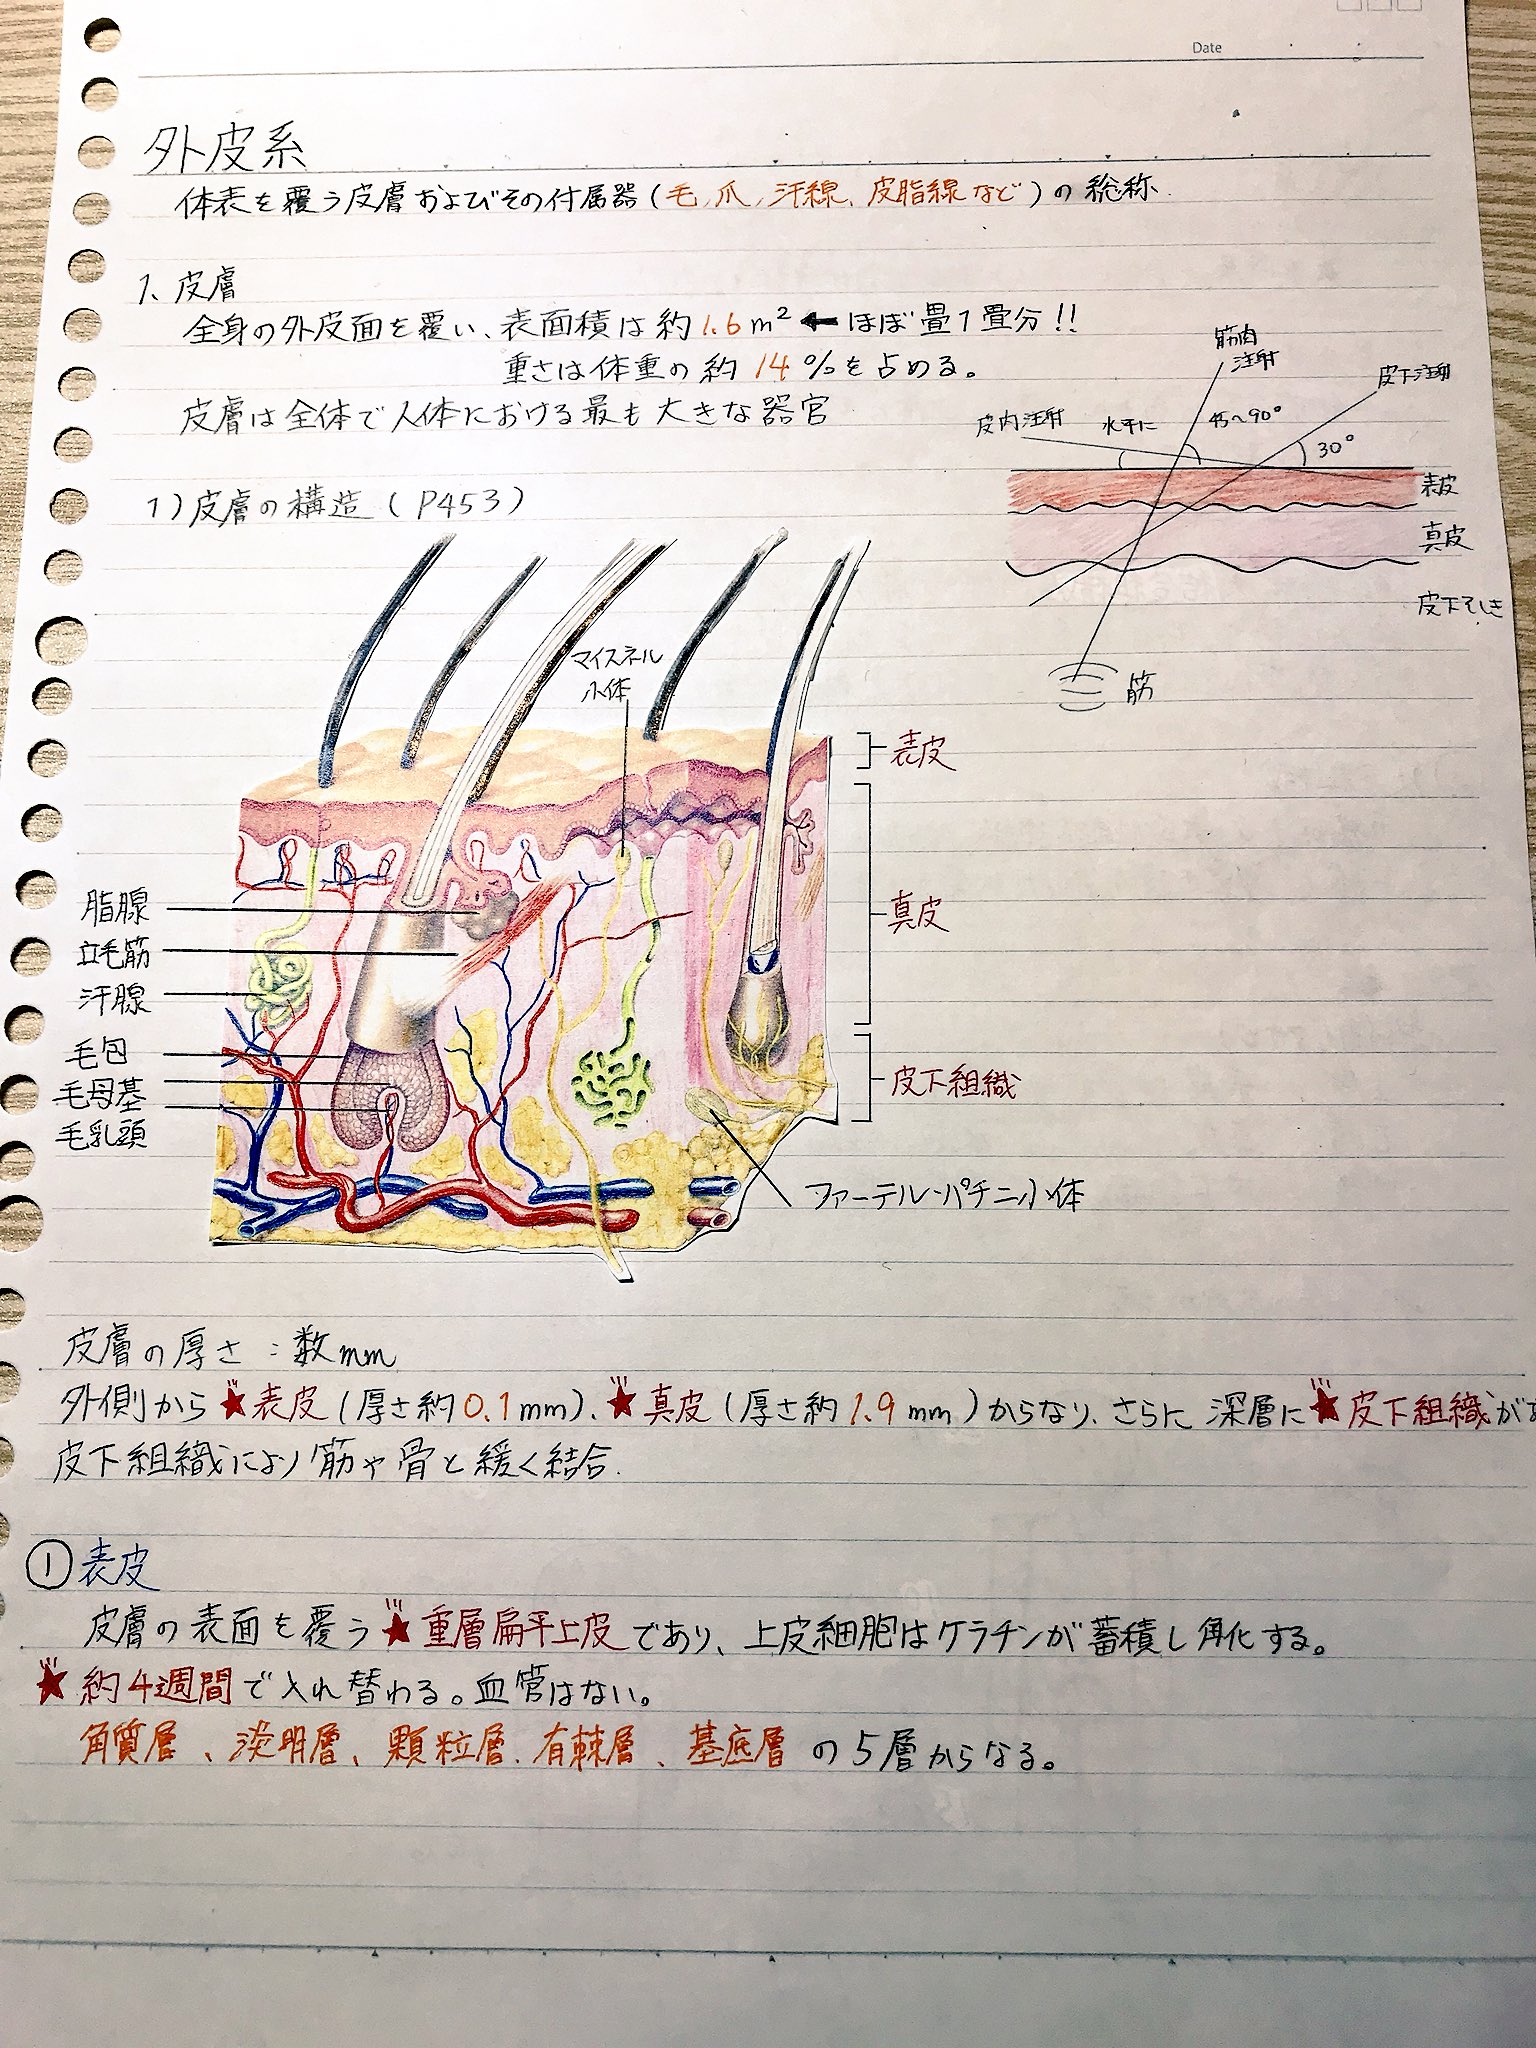 Date
外皮系
体表を覆う皮膚およびその付属器(毛、爪、汗線、皮脂線など)の総称.
1、皮膚
全身の外皮面を覆い、表面積は約1.6m²←ほぼ畳1畳分!!
重さは体重の約14%を占める。
皮膚は全体で人体における最も大きな器官
筋肉
注射
皮下注射
皮内注射
水平に
45〜90°
30°
表皮
真皮
皮下そしき
筋
1)皮膚の構造(P453)
マイスネル
小体
表皮
真皮
皮下組織
脂腺
立毛筋
汗腺
毛包
毛母基
毛乳頭
ファーテル・パチニ小体
皮膚の厚さ:数mm
外側から★表皮(厚さ約0.1mm)、★真皮(厚さ約1.9mm)からなり、さらに深層に★皮下組織が
皮下組織により筋や骨と緩く結合.
①表皮
皮膚の表面を覆う★重層扁平上皮であり、上皮細胞はケラチンが蓄積し角化する。
★約4週間で入れ替わる。血管はない。
角質層、淡明層、顆粒層、有棘層、基底層の5層からなる。